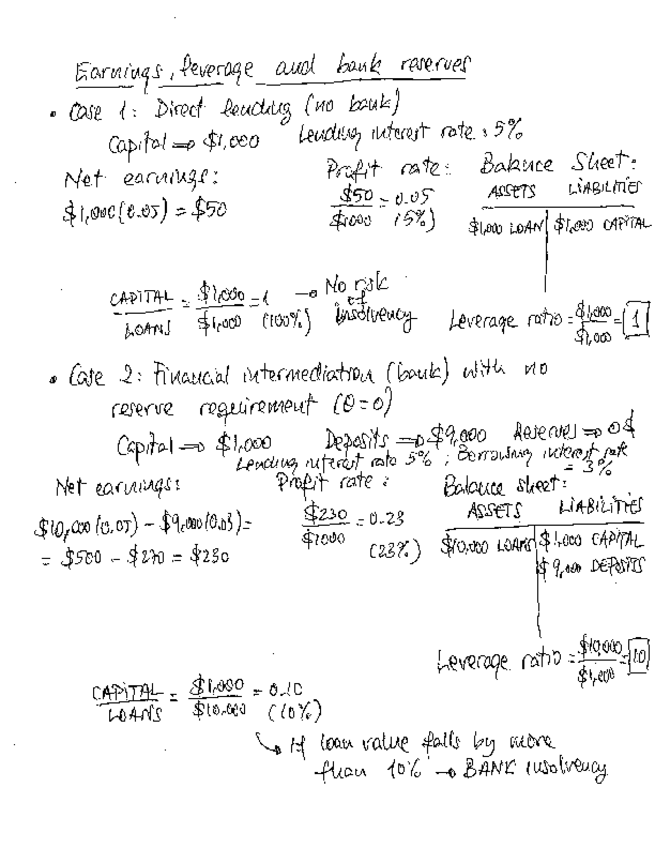 Earnings, leverage and bank reserves
• Case 1: Direct lending (no bank)
Capital ⇒ $1,000 Lending interest rate: 5%
Net earnings: Profit rate: Balance Sheet:
$1,000(0.05) = $50 $50/$1000 = 0.05 (5%) ASSETS LIABILITIES
$1,000 LOAN $1,000 CAPITAL
CAPITAL/LOANS = $1,000/$1,000 = 1 (100%) → No risk of insolvency
Leverage ratio = $1,000/$1,000 = 1
• Case 2: Financial intermediation (bank) with no
reserve requirement (θ=0)
Capital ⇒ $1,000 Deposits ⇒ $9,000 Reserves ⇒ 0$
Lending interest rate 5% ; Borrowing interest rate = 3%
Net earnings: Profit rate: Balance sheet:
$10,000(0.05) - $9,000(0.03) = $230/$1000 = 0.23 (23%) ASSETS LIABILITIES
= $500 - $270 = $230 $10,000 LOANS $1,000 CAPITAL
$9,000 DEPOSITS
Leverage ratio = $10,000/$1,000 = 10
CAPITAL/LOANS = $1,000/$10,000 = 0.10 (10%)
↳ If loan value falls by more
than 10% → BANK insolvency